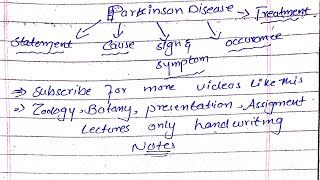 Parkinson Disease → Treatment
Statement Cause sign & occurance
symptom
⇒ Subscribe for more videos like this
⇒ Zoology, Botany, presentation, Assigment
Lectures only handwriting
Notes